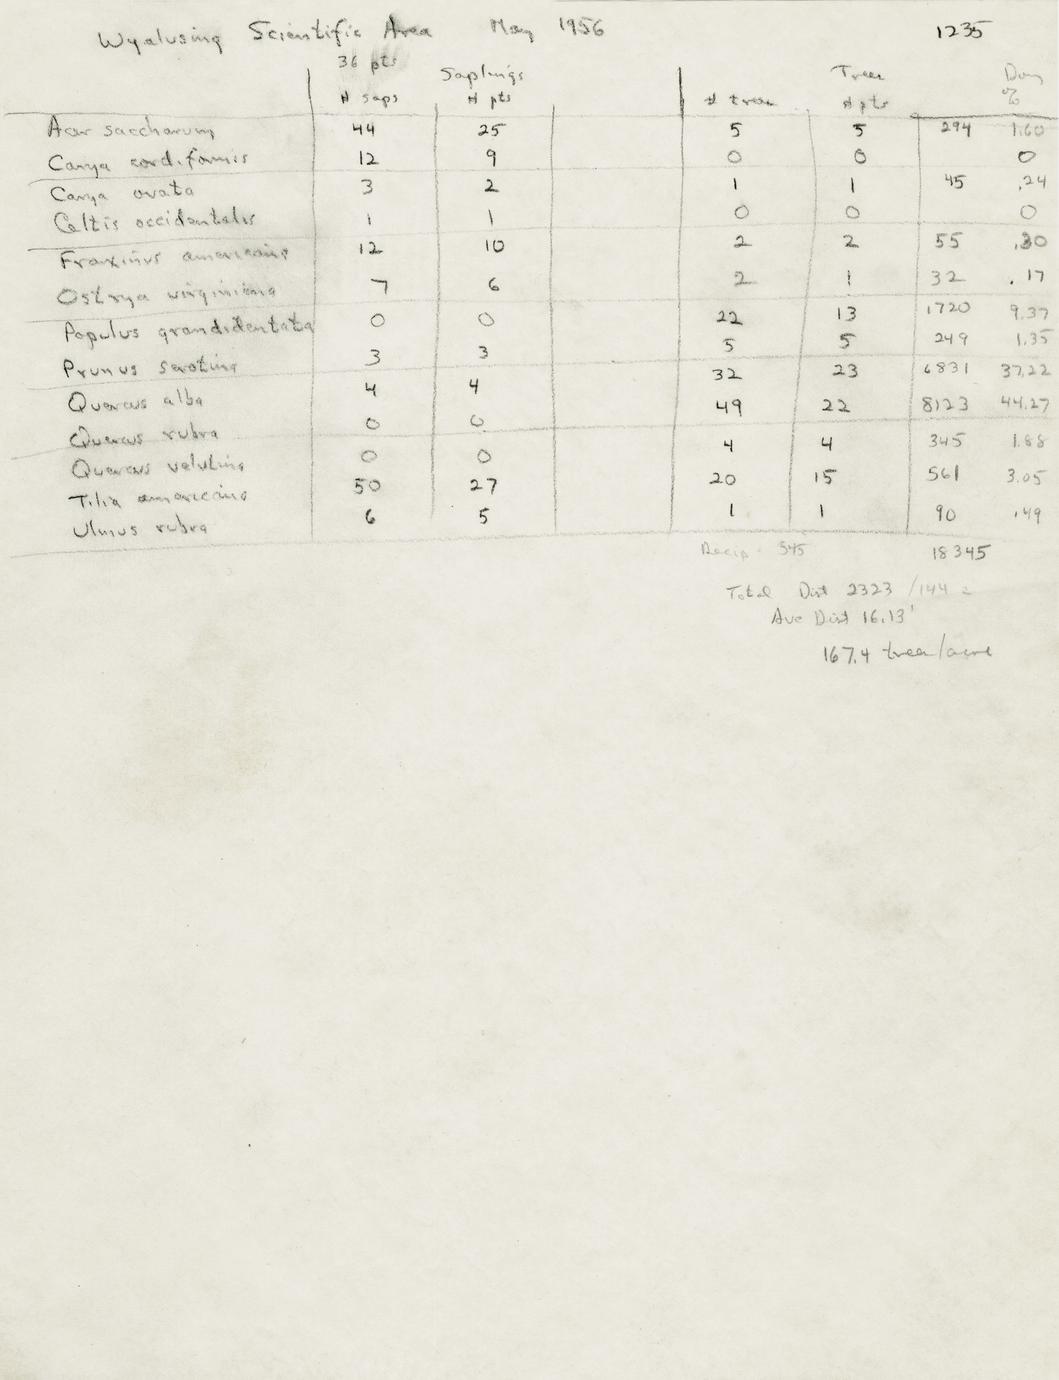 Wyalusing Scientific Area May 1956 1235
36 pts Saplings Trees Dom
# saps # pts # trees # pts %
Acer saccharum 44 25 5 5 294 1.60
Carya cordiformis 12 9 0 0 0
Carya ovata 3 2 1 1 45 .24
Celtis occidentalis 1 1 0 0 0
Fraxinus americana 12 10 2 2 55 .30
Ostrya virginiana 7 6 2 1 32 .17
Populus grandidentata 0 0 22 13 1720 9.37
Prunus serotina 3 3 5 5 249 1.35
Quercus alba 4 4 32 23 6831 37.22
Quercus rubra 0 0 49 22 8123 44.27
Quercus velutina 0 0 4 4 345 1.88
Tilia americana 50 27 20 15 561 3.05
Ulmus rubra 6 5 1 1 90 .49
Recip. 545 18345
Total Dist 2323 /144 =
Ave Dist 16.13'
167.4 trees/acre